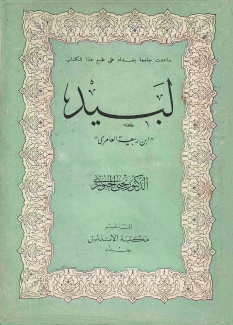 ساعدت جامعة بغداد على طبع هذا الكتاب
لبيد
"ابن ربيعة العامري"
الدكتور يحيى الجبوري
الناشر
مكتبة الأندلس
بغداد